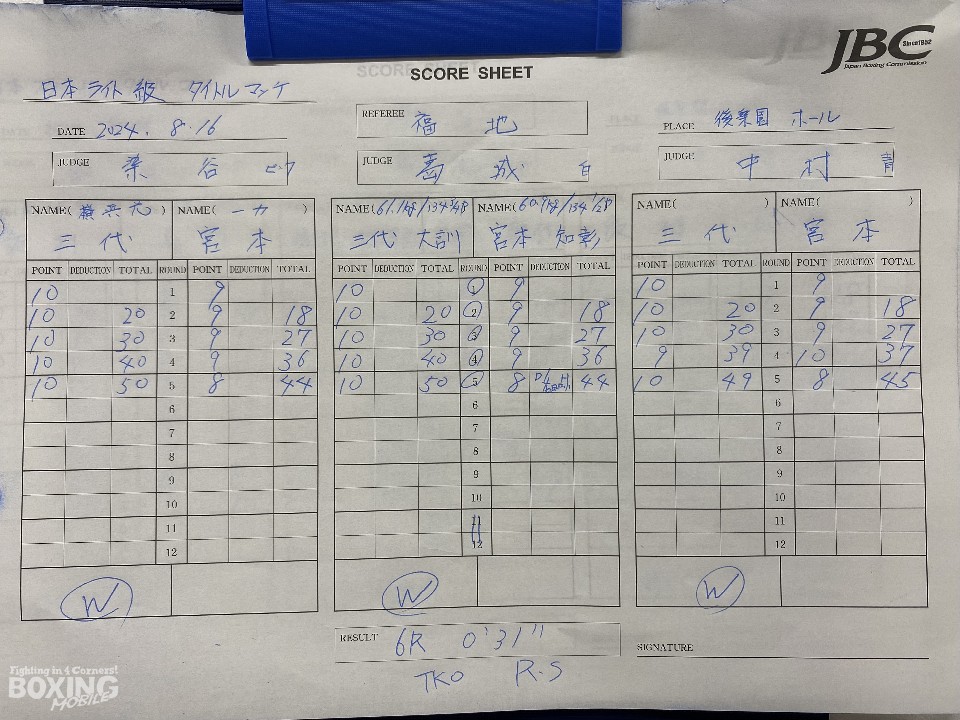 JBC Since1952
Japan Boxing Commission
SCORE SHEET
日本ライト級 タイトルマッチ
DATE 2024. 8.16
REFEREE 福 地
PLACE 後楽園 ホール
JUDGE 染 谷
JUDGE 葛 城 白
JUDGE 中 村 青
NAME( ) NAME( 一力 ) NAME( NAME( NAME( ) NAME( )
三 代 宮 本 三代 大訓 宮本 知彰 三 代 宮 本
POINT DEDUCTION TOTAL ROUND POINT DEDUCTION TOTAL POINT DEDUCTION TOTAL ROUND POINT DEDUCTION TOTAL POINT DEDUCTION TOTAL ROUND POINT DEDUCTION TOTAL
10 1 9 10 1 9 10 1 9
10 20 2 9 18 10 20 2 9 18 10 20 2 9 18
10 30 3 9 27 10 30 3 9 27 10 30 3 9 27
10 40 4 9 36 10 40 4 9 36 9 39 4 10 37
10 50 5 8 44 10 50 5 8 44 10 49 5 8 45
6 6 6
7 7 7
8 8 8
9 9 9
10 10 10
11 11 11
12 12 12
W W W
RESULT 6R 0'31"
SIGNATURE
TKO R.S
Fighting in 4 Corners!
BOXING
MOBILE